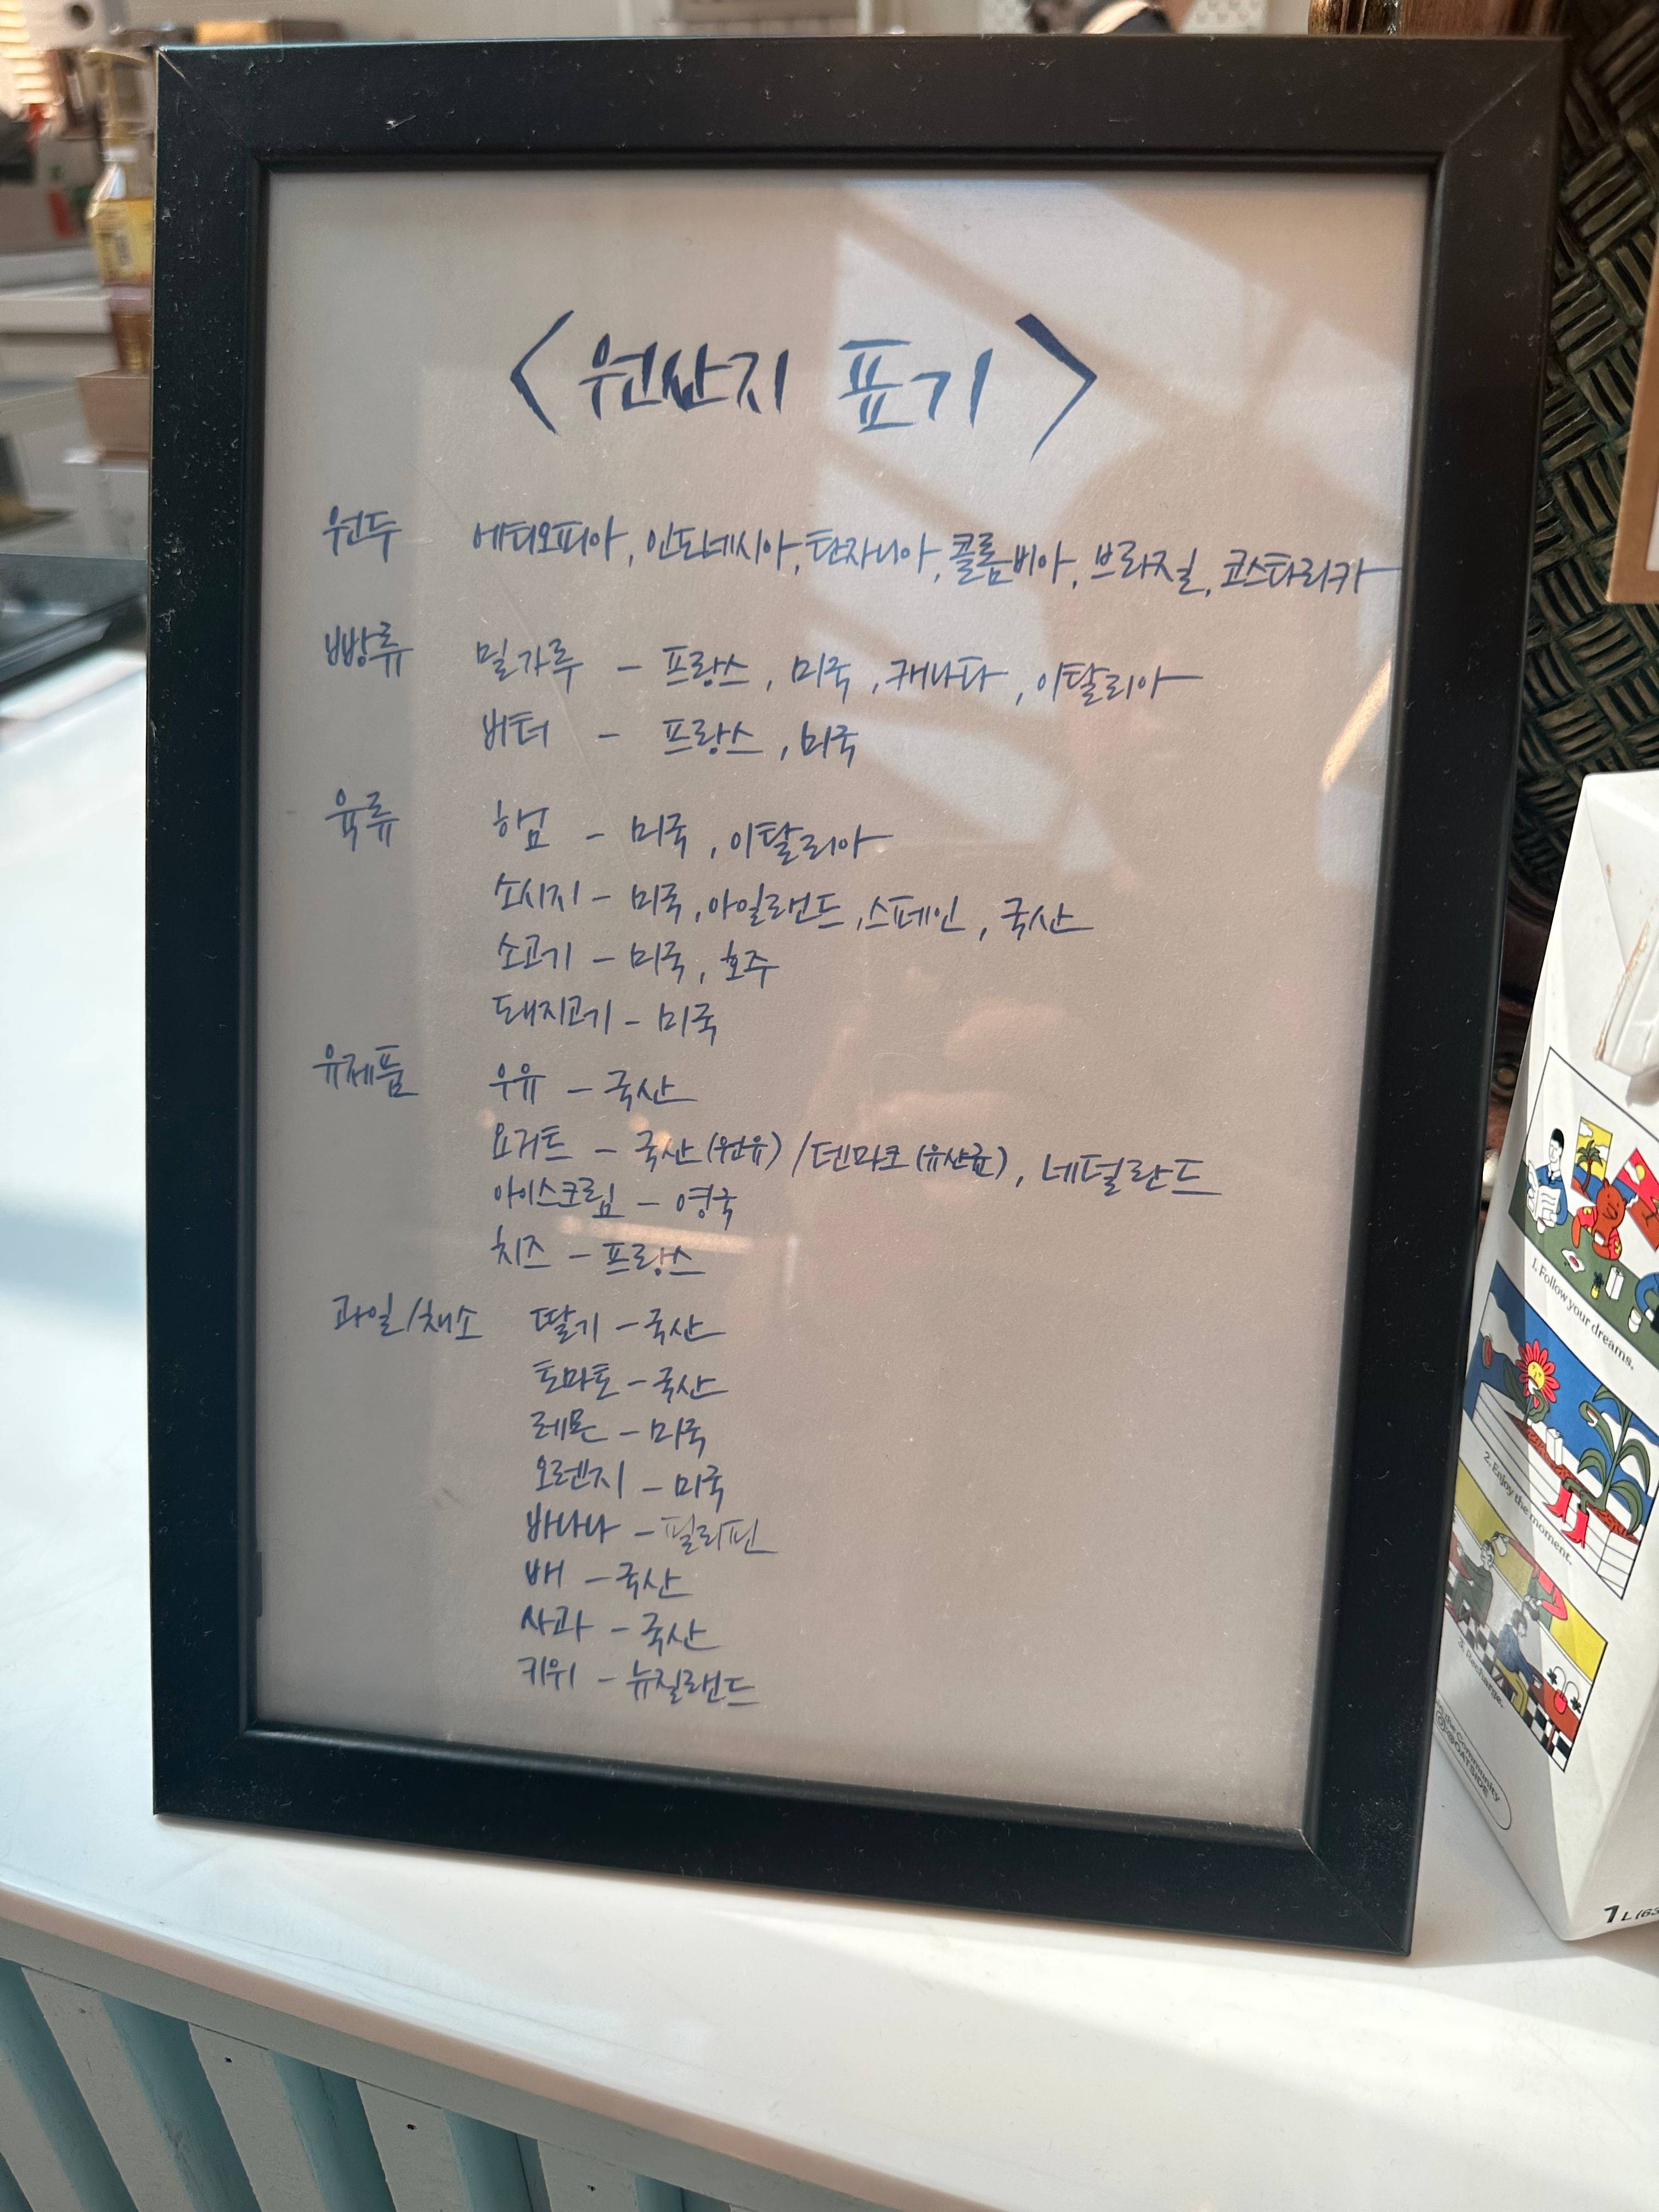 < 원산지 표기 >
원두 에티오피아, 인도네시아, 탄자니아, 콜롬비아, 브라질, 코스타리카
빵류 밀가루 - 프랑스, 미국, 캐나다, 이탈리아
버터 - 프랑스, 미국
육류 햄 - 미국, 이탈리아
소시지 - 미국, 아일랜드, 스페인, 국산
소고기 - 미국, 호주
돼지고기 - 미국
유제품 우유 - 국산
요거트 - 국산(원유) / 덴마크(유산균), 네덜란드
아이스크림 - 영국
치즈 - 프랑스
과일/채소 딸기 - 국산
토마토 - 국산
레몬 - 미국
오렌지 - 미국
바나나 - 필리핀
배 - 국산
사과 - 국산
키위 - 뉴질랜드
1. Follow your dreams.
2. Enjoy the moment.
3. Recharge.
@OATSIDE
1L